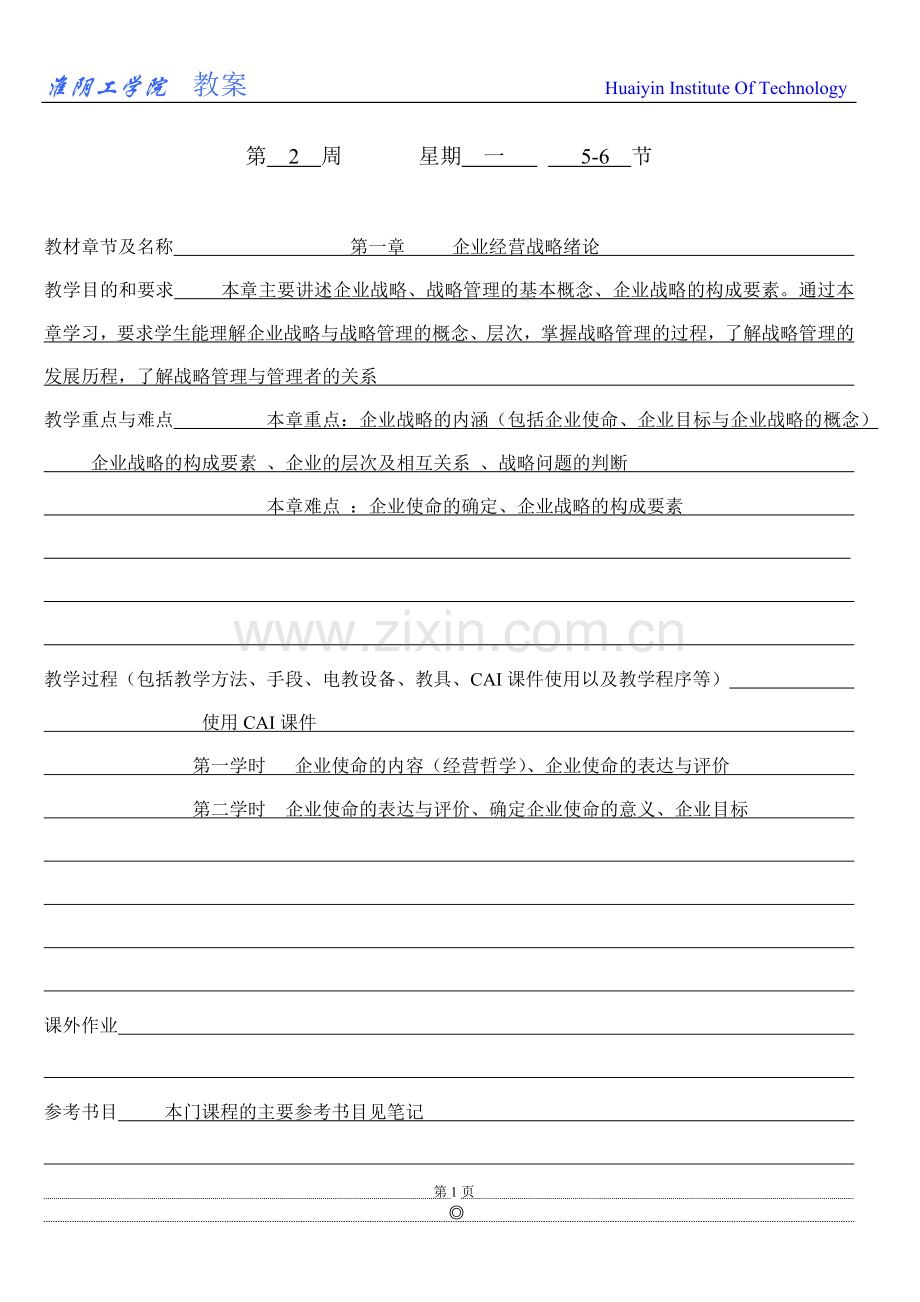 淮阴工学院 教案 Huaiyin Institute Of Technology
第 2 周 星期 一 5-6 节
教材章节及名称 第一章 企业经营战略绪论
教学目的和要求 本章主要讲述企业战略、战略管理的基本概念、企业战略的构成要素。通过本
章学习，要求学生能理解企业战略与战略管理的概念、层次，掌握战略管理的过程，了解战略管理的
发展历程，了解战略管理与管理者的关系
教学重点与难点 本章重点：企业战略的内涵（包括企业使命、企业目标与企业战略的概念）
企业战略的构成要素 、企业的层次及相互关系 、战略问题的判断
本章难点 ：企业使命的确定、企业战略的构成要素
www.zixin.com.cn
教学过程（包括教学方法、手段、电教设备、教具、CAI 课件使用以及教学程序等）
使用 CAI 课件
第一学时 企业使命的内容（经营哲学）、企业使命的表达与评价
第二学时 企业使命的表达与评价、确定企业使命的意义、企业目标
课外作业
参考书目 本门课程的主要参考书目见笔记
第 1 页
◎